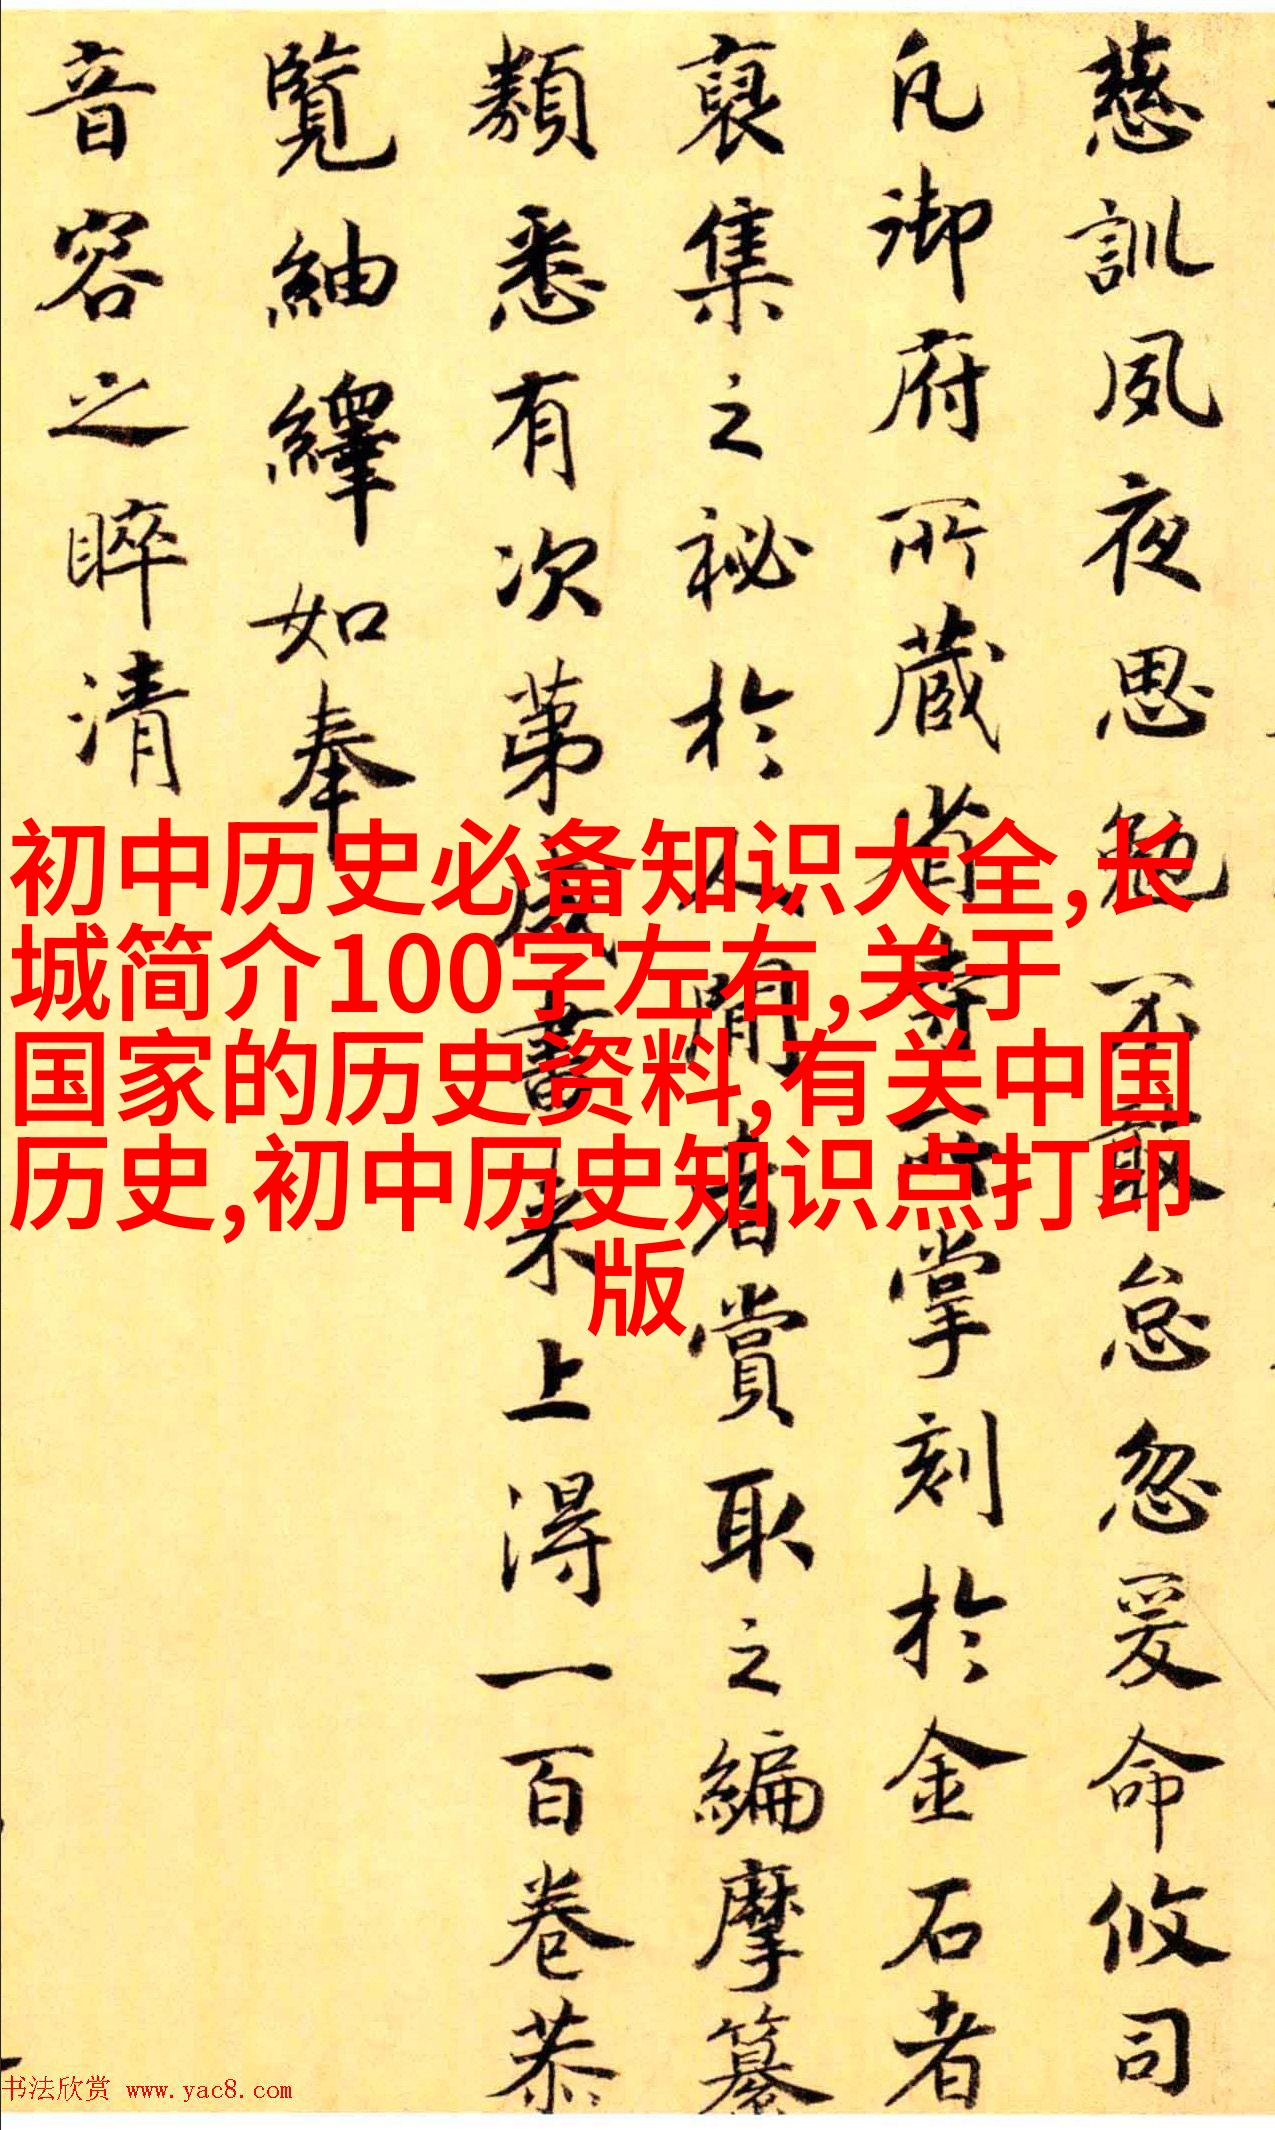 慈訓夙夜思勉不敢怠忽爰命攸司
凡御府所藏省寺所掌刻於金石者
裒集之祕於人閒者賞取之編摩纂
類悉有次第歲書來上得一百卷恭
覽紬繹如奉
音容之睟清
初中历史必备知识大全,长
城简介100字左右,关于
国家的历史资料,有关中国
历史,初中历史知识点打印
版
书法欣赏 www.yac8.com